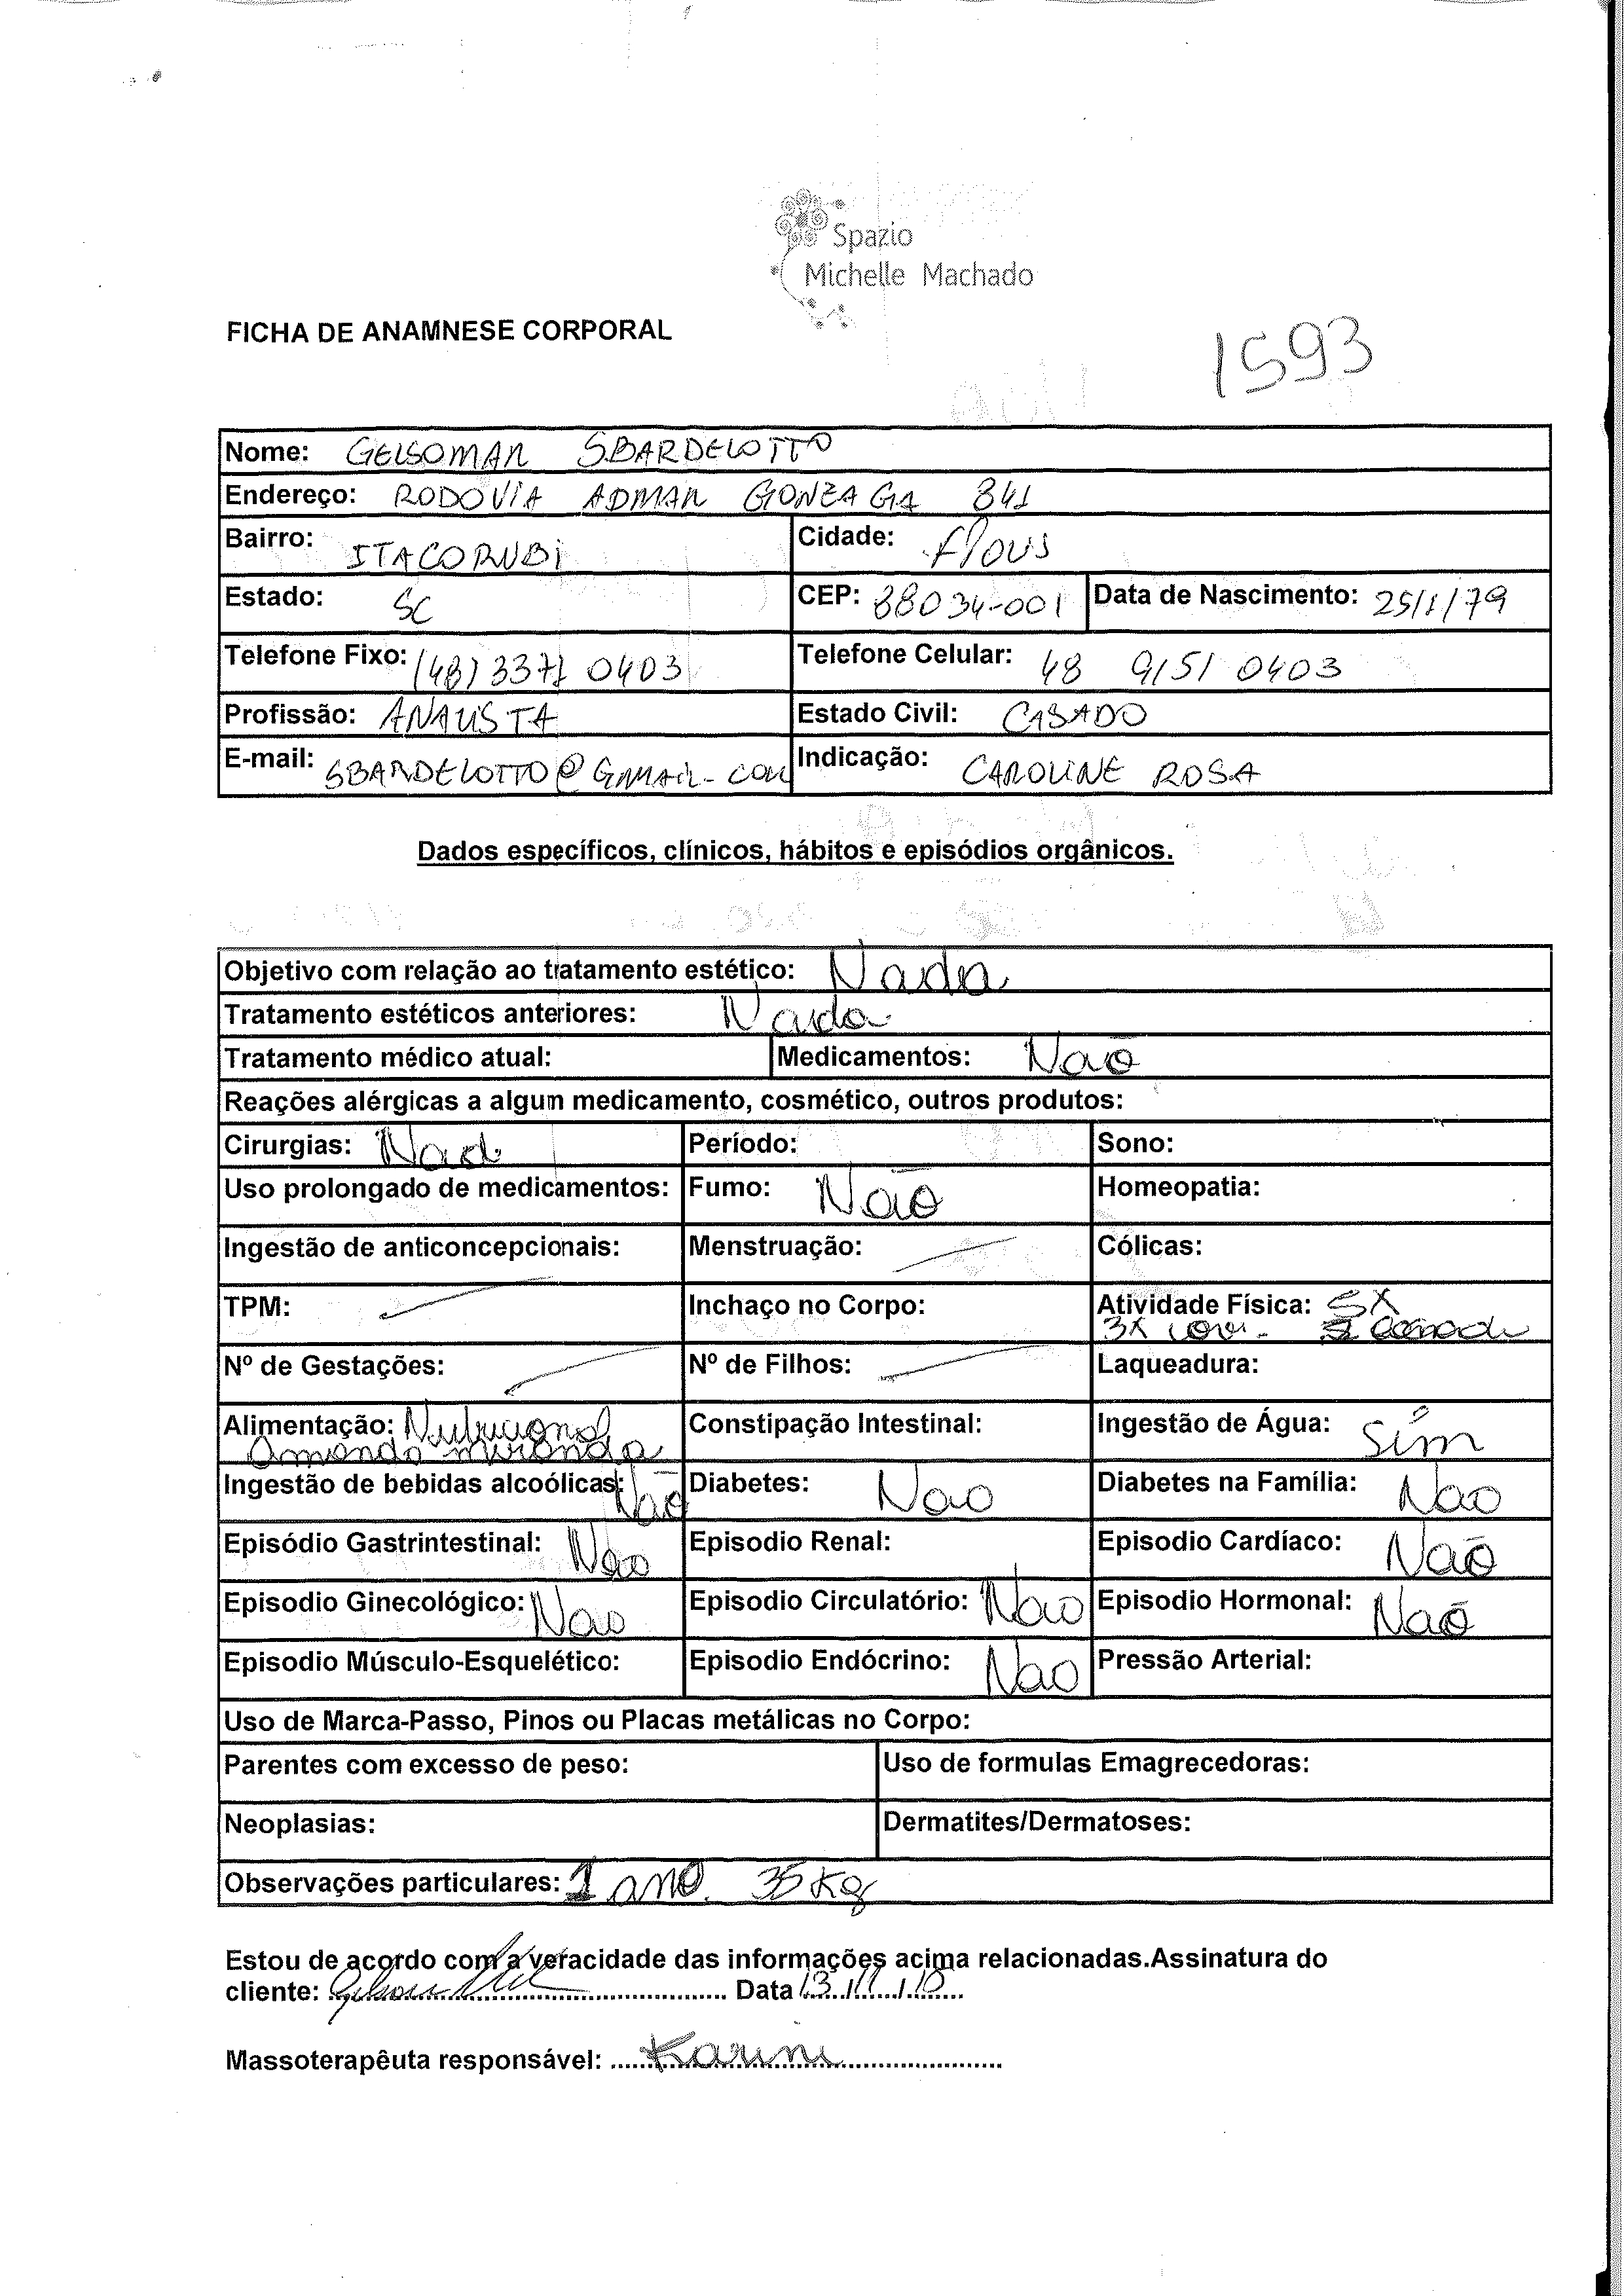 Spazio
Michelle Machado
FICHA DE ANAMNESE CORPORAL
1593
Nome: GELSOMAR SBARDELOTTO
Endereço: RODOVIA ADMAR GONZAGA 841
Bairro: ITACORUBI Cidade: Flous
Estado: SC CEP: 88034-001 Data de Nascimento: 25/1/79
Telefone Fixo: (48) 3371 0403 Telefone Celular: 48 9151 0403
Profissão: ANALISTA Estado Civil: CASADO
E-mail: SBARDELOTTO@GMAIL.COM Indicação: CAROLINE ROSA
Dados específicos, clínicos, hábitos e episódios orgânicos.
Objetivo com relação ao tratamento estético: Nada
Tratamento estéticos anteriores: Nada
Tratamento médico atual: Medicamentos: Não
Reações alérgicas a algum medicamento, cosmético, outros produtos:
Cirurgias: Nad Período: Sono:
Uso prolongado de medicamentos: Fumo: Não Homeopatia:
Ingestão de anticoncepcionais: Menstruação: Cólicas:
TPM: Inchaço no Corpo: Atividade Física: 5X
3X
Nº de Gestações: Nº de Filhos: Laqueadura:
Alimentação: Nutricional Constipação Intestinal: Ingestão de Água: Sim
Amanda miranda
Ingestão de bebidas alcoólicas: Não Diabetes: Nao Diabetes na Família: Nao
Episódio Gastrintestinal: Não Episodio Renal: Episodio Cardíaco: Não
Episodio Ginecológico: Nao Episodio Circulatório: Nao Episodio Hormonal: Não
Episodio Músculo-Esquelético: Episodio Endócrino: Nao Pressão Arterial:
Uso de Marca-Passo, Pinos ou Placas metálicas no Corpo:
Parentes com excesso de peso: Uso de formulas Emagrecedoras:
Neoplasias: Dermatites/Dermatoses:
Observações particulares: 1 ano. 35 Kg
Estou de acordo com a veracidade das informações acima relacionadas.Assinatura do
cliente: Data
Massoterapêuta responsável: Karini